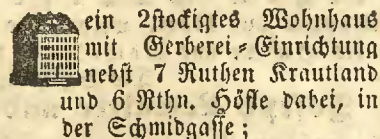 ein 2stockigtes Wohnhaus
mit Gerberei-Einrichtung
nebst 7 Ruthen Krautland
und 6 Rthn. Höfle dabei, in
der Schmidgasse;